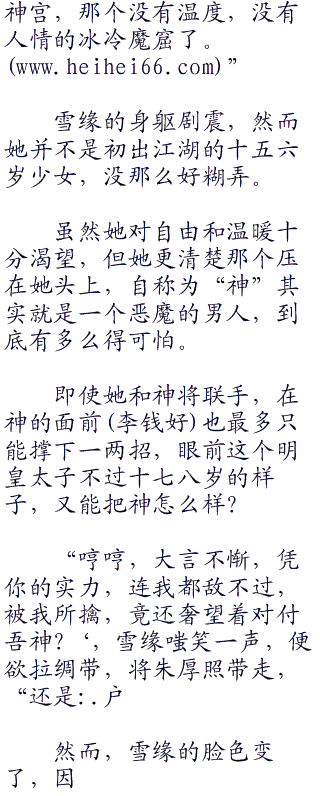 神宫，那个没有温度，没有
人情的冰冷魔窟了。
(www.heihei66.com)”
雪缘的身躯剧震，然而
她并不是初出江湖的十五六
岁少女，没那么好糊弄。
虽然她对自由和温暖十
分渴望，但她更清楚那个压
在她头上，自称为“神”其
实就是一个恶魔的男人，到
底有多么得可怕。
即使她和神将联手，在
神的面前(李钱好)也最多只
能撑下一两招，眼前这个明
皇太子不过十七八岁的样
子，又能把神怎么样？
“哼哼，大言不惭，凭
你的实力，连我都敌不过，
被我所擒，竟还奢望着对付
吾神？‘，雪缘嗤笑一声，便
欲拉绸带，将朱厚照带走，
“还是:.户
然而，雪缘的脸色变
了，因